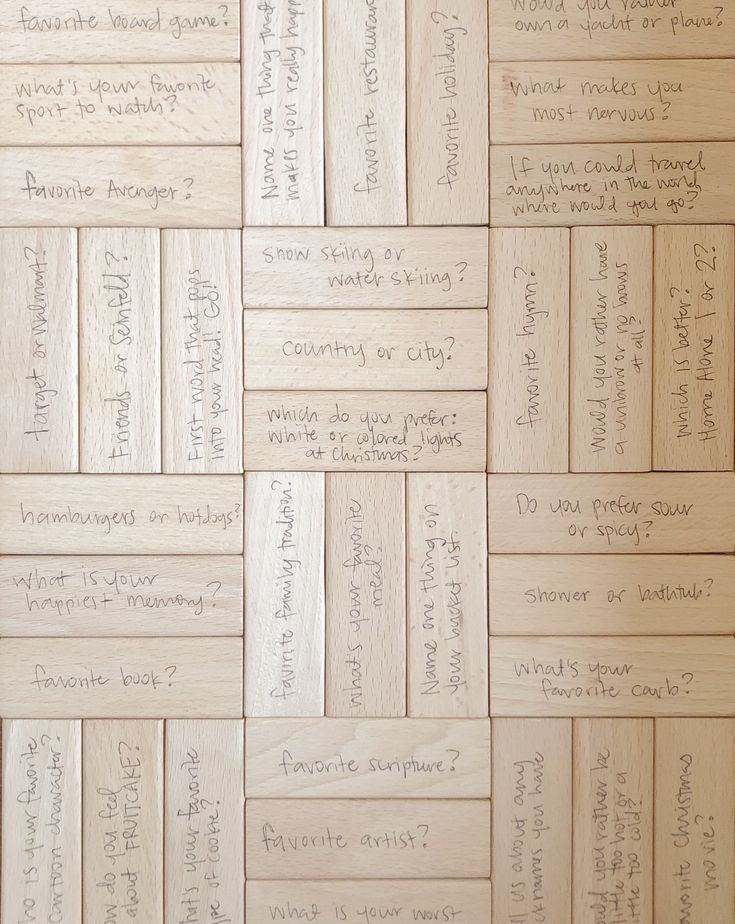 favorite board game?
what's your favorite
sport to watch?
favorite Avenger?
Name one thing that
makes you really happ
favorite restauran
favorite holiday?
would you rather
own a yacht or plane?
what makes you
most nervous?
If you could travel
anywhere in the world,
where would you go?
Target or Walmart?
Friends or Seinfeld?
First word that pops
into your head! GO!
snow skiing or
water skiing?
country or city?
which do you prefer:
white or colored lights
at Christmas?
favorite hymn?
would you rather have
a unibrow or no brows
at all?
which is better?
Home Alone 1 or 2?
hamburgers or hotdogs?
what is your
happiest memory?
favorite book?
favirite family tradition?
what's your favorite
meal?
Name one thing on
your bucket list.
Do you prefer sour
or spicy?
shower or bathtub?
what's your
favorite carb?
ho is your favorite
cartoon character?
ow do you feel
about FRUITCAKE?
hat's your favorite
pe of cookie?
favorite scripture?
favorite artist?
what is your worst
ll us about any
knames you have
uld you rather be
ttle too hot or a
ttle too cold?
avorite Christmas
movie?